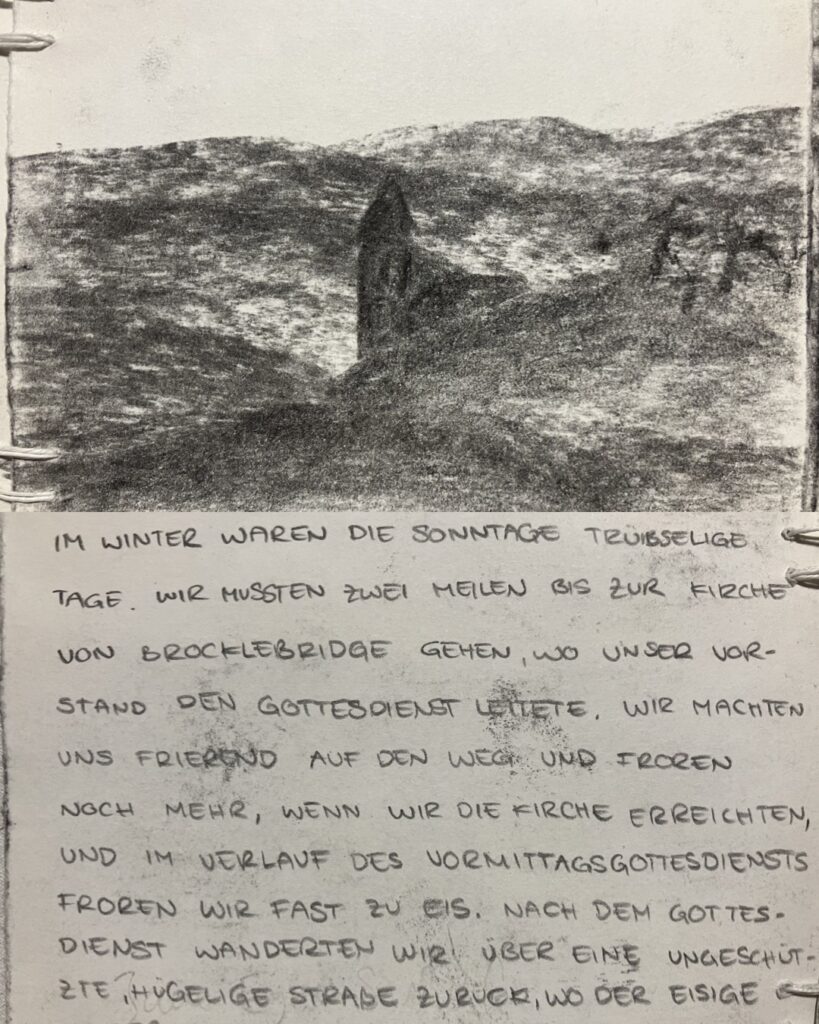 IM WINTER WAREN DIE SONNTAGE TRÜBSELIGE
TAGE. WIR MUSSTEN ZWEI MEILEN BIS ZUR KIRCHE
VON BROCKLEBRIDGE GEHEN, WO UNSER VOR-
STAND DEN GOTTESDIENST LEITETE. WIR MACHTEN
UNS FRIEREND AUF DEN WEG UND FROREN
NOCH MEHR, WENN WIR DIE KIRCHE ERREICHTEN,
UND IM VERLAUF DES VORMITTAGSGOTTESDIENSTS
FROREN WIR FAST ZU EIS. NACH DEM GOTTES-
DIENST WANDERTEN WIR ÜBER EINE UNGESCHÜT-
ZTE, HÜGELIGE STRAßE ZURÜCK, WO DER EISIGE